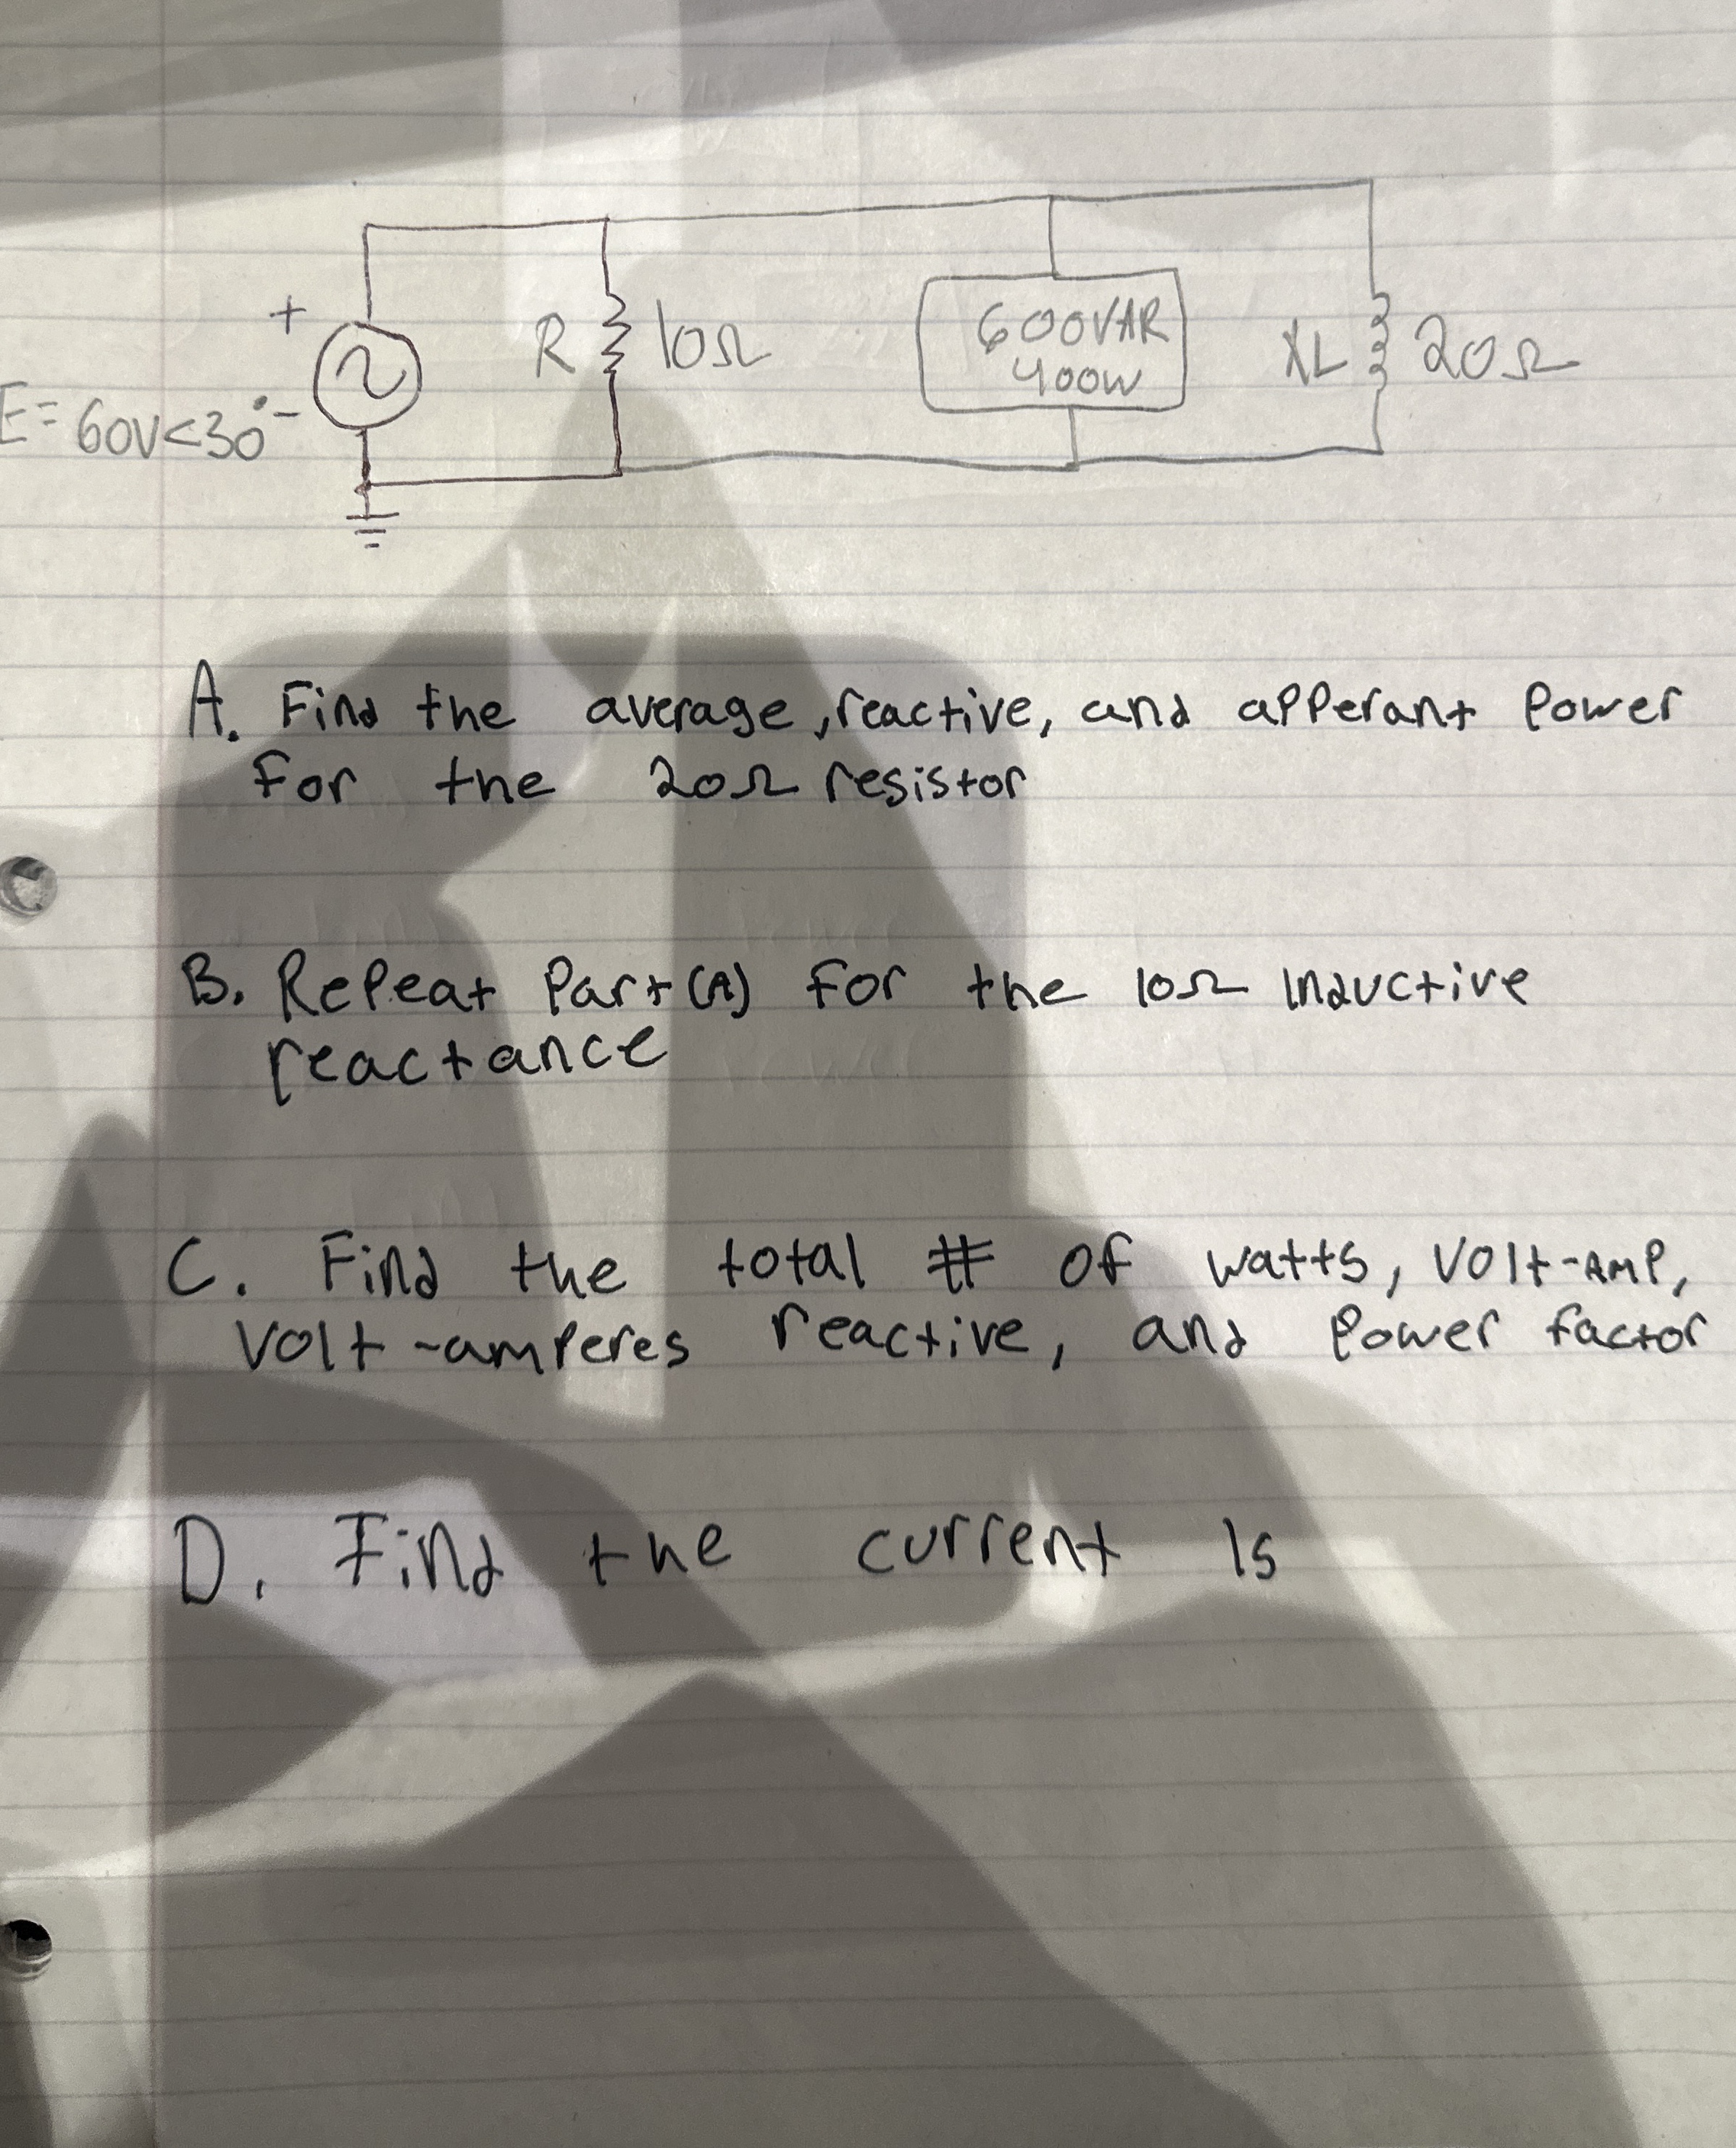 +
R 10Ω
600VAR
400W
XL 20Ω
E = 60V<30° -
A. Find the average, reactive, and apperant Power
for the 20Ω resistor
B. Repeat Part (A) for the 10Ω Inductive
reactance
C. Find the total # of watts, Volt-AMP,
Volt-amperes reactive, and Power factor
D. Find the current Is